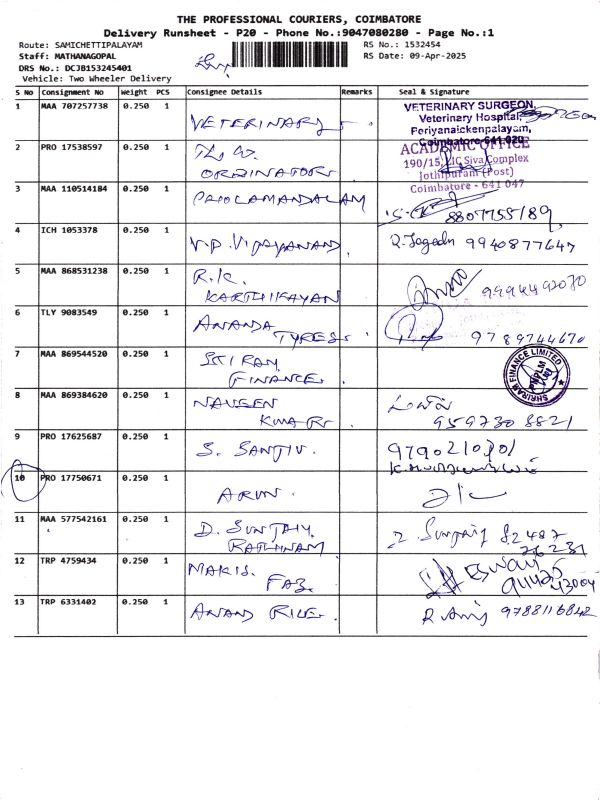 THE PROFESSIONAL COURIERS, COIMBATORE
Delivery Runsheet - P20 - Phone No.:9047080280 - Page No.:1
Route: SAMICHETTIPALAYAM
RS No.: 1532454
Staff: MATHANAGOPAL
RS Date: 09-Apr-2025
DRS No.: DCJB153245401
Vehicle: Two Wheeler Delivery
S No Consignment No Weight PCS Consignee Details Remarks Seal & Signature
1 MAA 707257738 0.250 1 VETERINARY
VETERINARY SURGEON,
Veterinary Hospital,
Periyanaickenpalayam,
Coimbatore-641 020
2 PRO 17538597 0.250 1
ORDINATOR
ACADEMIC OFFICE
190/15, LIC Siva Complex
Jothipuram (Post)
Coimbatore - 641 047
3 MAA 110514184 0.250 1 CHOLAMANDALAM
8807755189
4 ICH 1053378 0.250 1 V.P. VIJAYANAND R. Jagadn 9940877647
5 MAA 868531238 0.250 1 R.K.
KARTHIKAYAN
9994492070
6 TLY 9083549 0.250 1 ANANDA
TYRES
9789744670
7 MAA 869544520 0.250 1 SRI RAM
FINANCE
SHRIRAM FINANCE LIMITED
8 MAA 869384620 0.250 1 NAVEEN
KUMAR
9597308821
9 PRO 17625687 0.250 1 S. SANJIV.
9790210701
10 PRO 17750671 0.250 1 ARUN.
11 MAA 577542161 0.250 1 D. SUNJAY
RATHINAM
82487
26231
12 TRP 4759434 0.250 1 MAKIS.
FAB.
Eswari
91425
43004
13 TRP 6331402 0.250 1 ANAND RILE. R Anij 9788116842